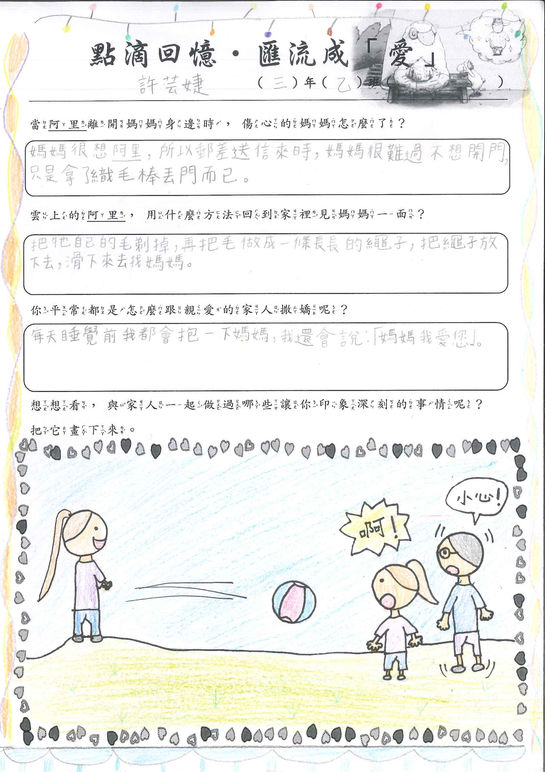 點滴回憶・匯流成「愛」
許芸婕 (三)年(乙)班( )
當阿里離開媽媽身邊時，傷心的媽媽怎麼了？
媽媽很想阿里，所以郵差送信來時，媽媽很難過不想開門，
只是拿了織毛棒丟門而已。
雲上的阿里，用什麼方法回到家裡見媽媽一面？
把牠自己的毛剃掉，再把毛做成一條長長的繩子，把繩子放
下去，滑下來去找媽媽。
你平常都是怎麼跟親愛的家人撒嬌呢？
每天睡覺前我都會抱一下媽媽，我還會說：「媽媽我愛您」。
想想看，與家人一起做過哪些讓你印象深刻的事情呢？
把它畫下來。
小心！
啊！